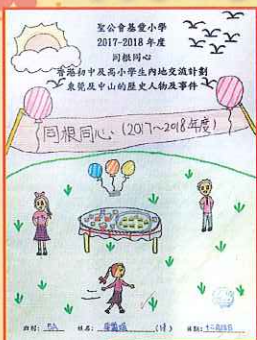 聖公會基愛小學
2017-2018 年度
同根同心
香港初中及高小學生內地交流計劃
東莞及中山的歷史人物及事件
同根同心 (2017~2018年度)
班別： 姓名： 日期：